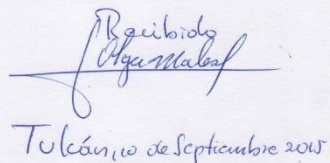 Recibido
Olga
Tulcán, 10 de Septiembre 2015